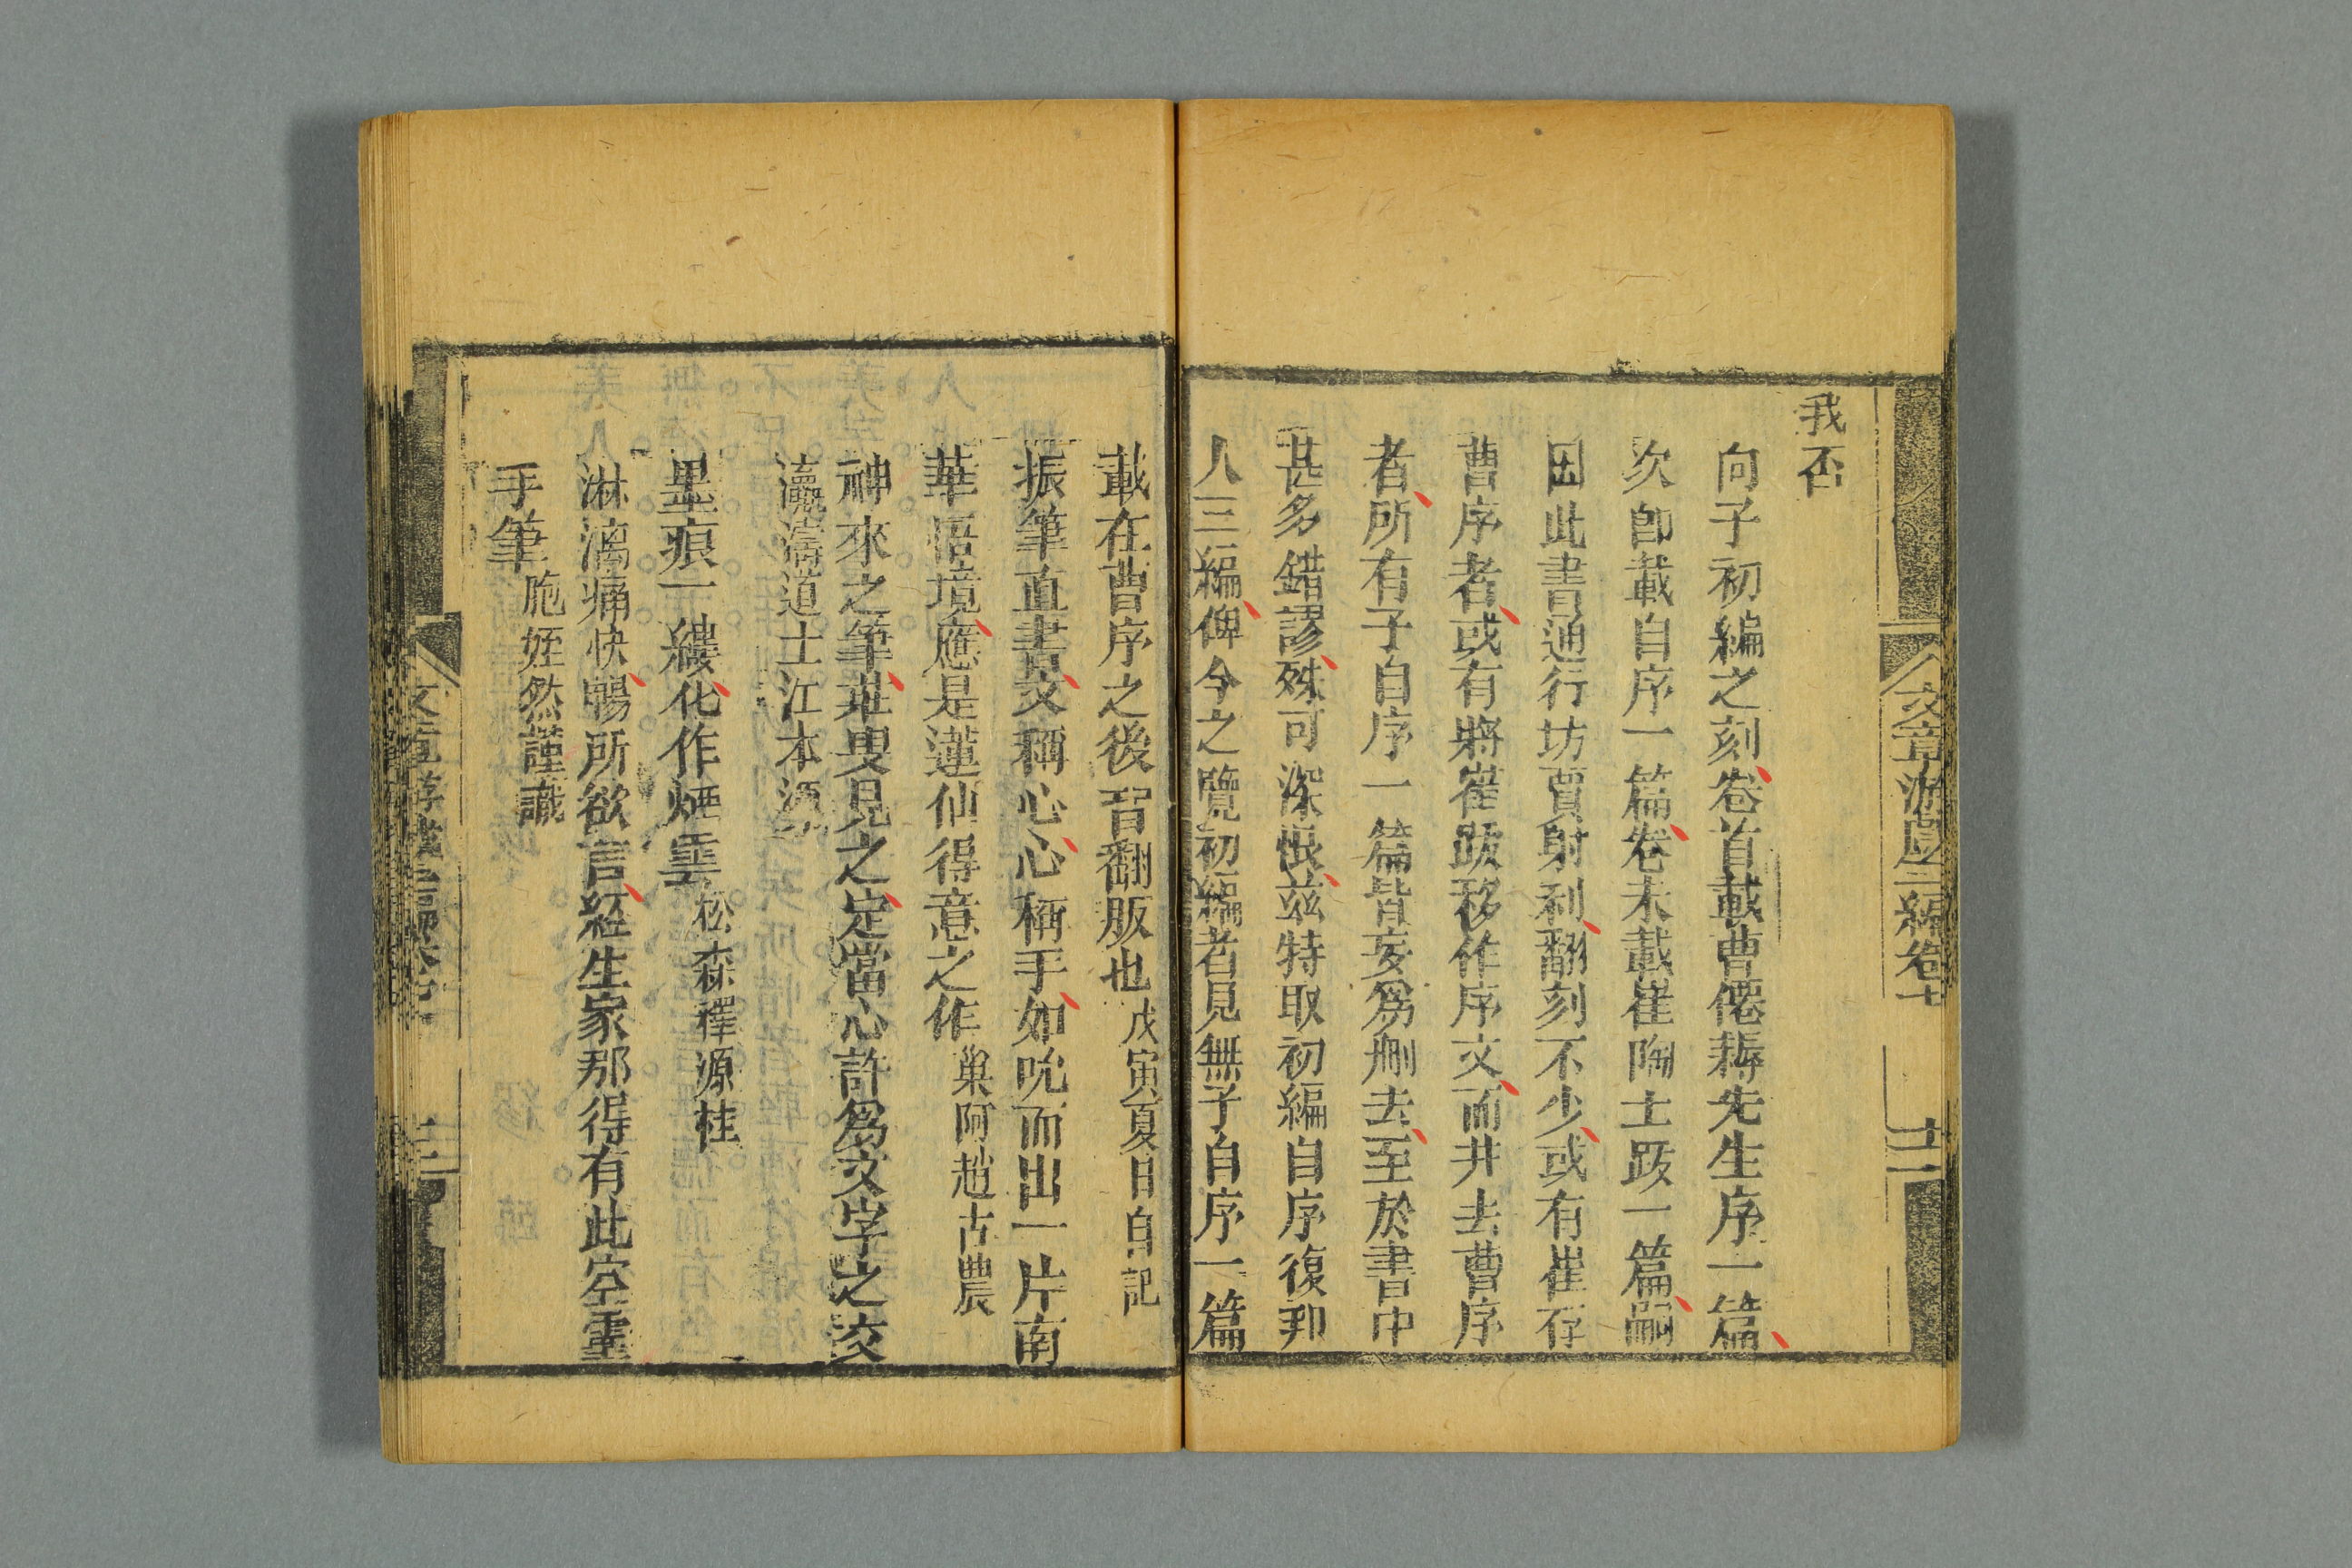 文章游戲三編卷七
十一
我否
向予初編之刻卷首載曹僊耨先生序一篇
次卽載自序一篇卷末載崔陶士跋一篇嗣
因此書通行坊賈射利翻刻不少或有崔存
曹序者或有將崔跋移作序文而并去曹序
者所有予自序一篇皆妄爲刪去至於書中
甚多錯謬殊可深恨茲特取初編自序復列
入三編俾今之覽初編者見無予自序一篇
載在曹序之後皆翻版也 戊寅夏日自記
振筆直書文稱心心稱手如吮而出一片南
華悟境應是蓮仙得意之作 巢阿趙古農
神來之筆莊叟見之定當心許爲文字之交
瀛濤道士江本源
墨痕一縷化作煙雲 松森釋源桂
淋漓痛快暢所欲言經生家那得有此空靈
手筆 胞姪然謹識